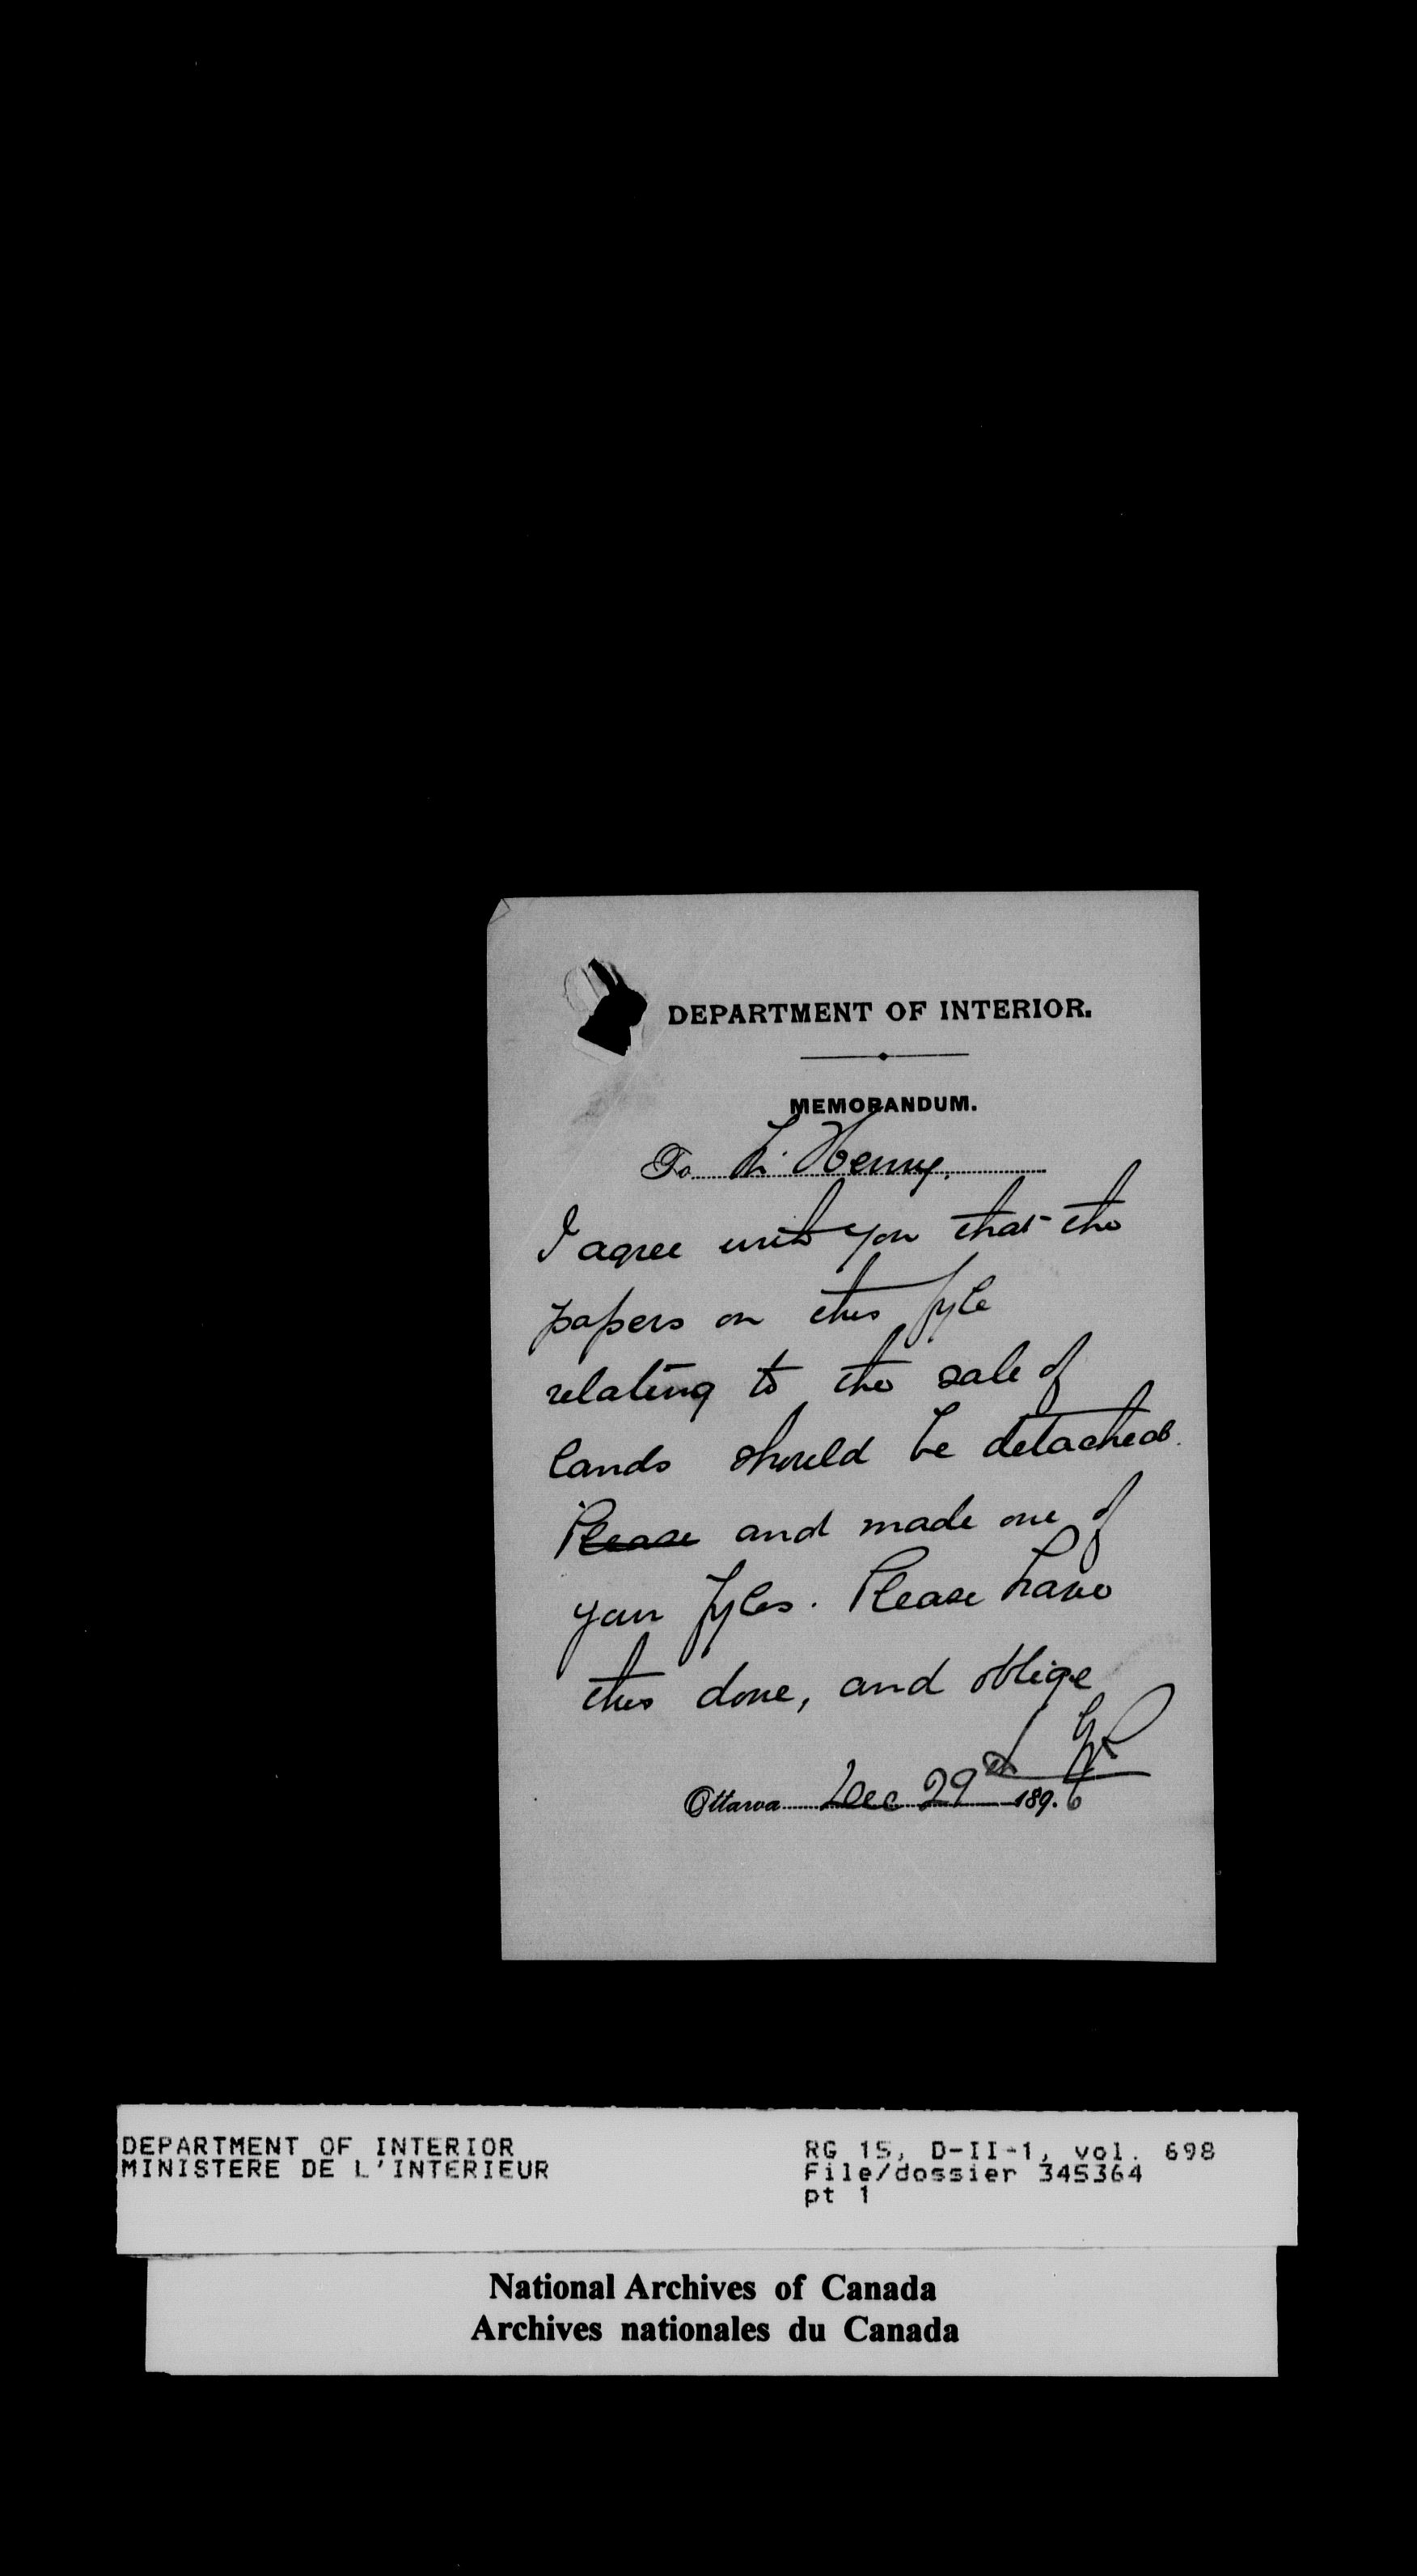 DEPARTMENT OF INTERIOR.
MEMORANDUM.
To Henry.
I agree with you that the
papers on this fyle
relating to the sale of
lands should be detached.
Please and made one of
your fyles. Please have
this done, and oblige
Ottawa Dec 29th 189.6
DEPARTMENT OF INTERIOR
MINISTERE DE L'INTERIEUR
RG 15, D-II-1, vol. 698
File/dossier 345364
pt 1
National Archives of Canada
Archives nationales du Canada